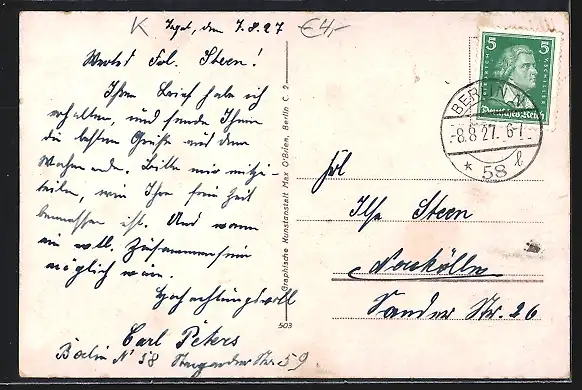 K Tegel, den 7.8.27 €4,-
Werted Frl. Steen!
Ihren Brief habe ich
erhalten, und sende Ihnen
die besten Grüße aus dem
Wochenende. Bitte mir mitzu-
teilen, wie Ihre freie Zeit
bemessen ist. Und wann
ein evtl. Zusammensein
möglich wäre.
Hochachtungsvoll
Carl Peters
Berlin N 58 Str. 59
Graphische Kunstanstalt Max O'Brien, Berlin C. 2
503
5 5
Deutsches Reich
BERLIN N
-8.8.27. 6-7
* 58 l
Frl
Ilse Steen
Neukölln
Sander Str. 26